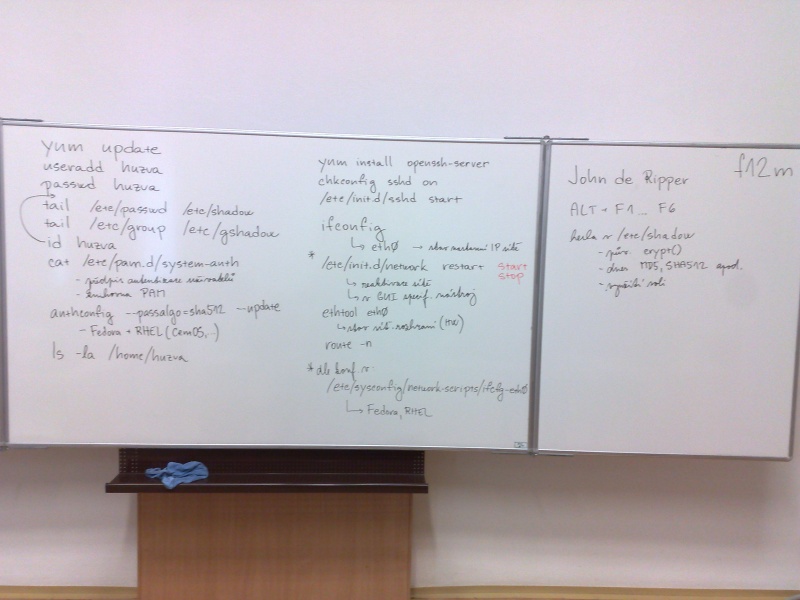 yum update
useradd huzva
passwd huzva
tail /etc/passwd /etc/shadow
tail /etc/group /etc/gshadow
id huzva
cat /etc/pam.d/system-auth
- předpis autentizace uživatelů
- knihovna PAM
authconfig --passalgo=sha512 --update
- Fedora + RHEL (CentOS,..)
ls -la /home/huzva
yum install openssh-server
chkconfig sshd on
/etc/init.d/sshd start
ifconfig
↳ eth0 → stav nastavení IP sítě
* /etc/init.d/network restart start stop
↳ reaktivace sítě
↳ v GUI specif. nástroj
ethtool eth0
↳ stav síť. rozhraní (HW)
route -n
* dle konf. v
/etc/sysconfig/network-scripts/ifcfg-eth0
↳ Fedora, RHEL
f12m
John de Ripper
ALT + F1 ... F6
hesla v /etc/shadow
- pův. crypt()
- dnes MD5, SHA512 apod.
- využití soli